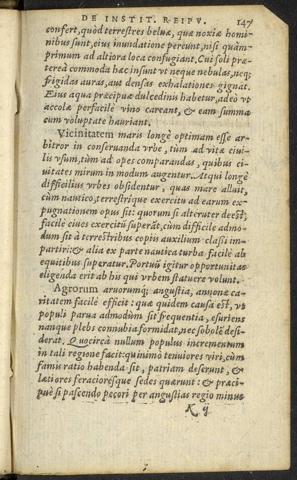 DE INSTIT. REIPV. 147
confert, quòd terrestres beluæ, quæ noxiæ homi-
nibus sunt, eius inundatione pereunt, nisi quàm-
primum ad altiora loca confugiant. Cui soli præ-
tereà commoda hæc insunt vt neque nebulas, necq;
frigidas auras, aut densas exhalationes gignat.
Eius aqua præcipuæ dulcedinis habetur, adeò vt
accolæ perfacilè vino careant, & eam summa
cum voluptate hauriant.
Vicinitatem maris longè optimam esse ar-
bitror in conseruanda vrbe, tùm ad vitæ ciui-
lis vsum, tùm ad opes comparandas, quibus ci-
uitates mirum in modum augentur. Atqui longè
difficilius vrbes obsidentur, quas mare alluit,
cùm nautico, terrestriq́ue exercitu ad earum ex-
pugnationem opus sit: quorum si alteruter deest,
facilè ciues exercitũ superãt, cùm difficile admo-
dum sit à terrestribus copiis auxilium classi im-
partiri: & alia ex parte nautica turba facilè ab
equitibus superatur. Portuũ igitur opportunitas
eligenda erit ab his qui vrbem statuere volunt.
Agrorum aruorumq; angustia, annonæ ca-
ritatem facilè efficit: quæ quidem causa est, vt
populi parua admodùm sit frequentia, esuriens
nanque plebs connubia formidat, nec sobolẽ desi-
derat. Quocircà nullum populus incrementum
in tali regione facit: quinimò tenuiores viri, cùm
famis ratio habenda sit, patriam deserunt, &
lætiores feracioresque sedes quærunt: & præci-
puè si pascendo pecori per angustias regio minus
K ij